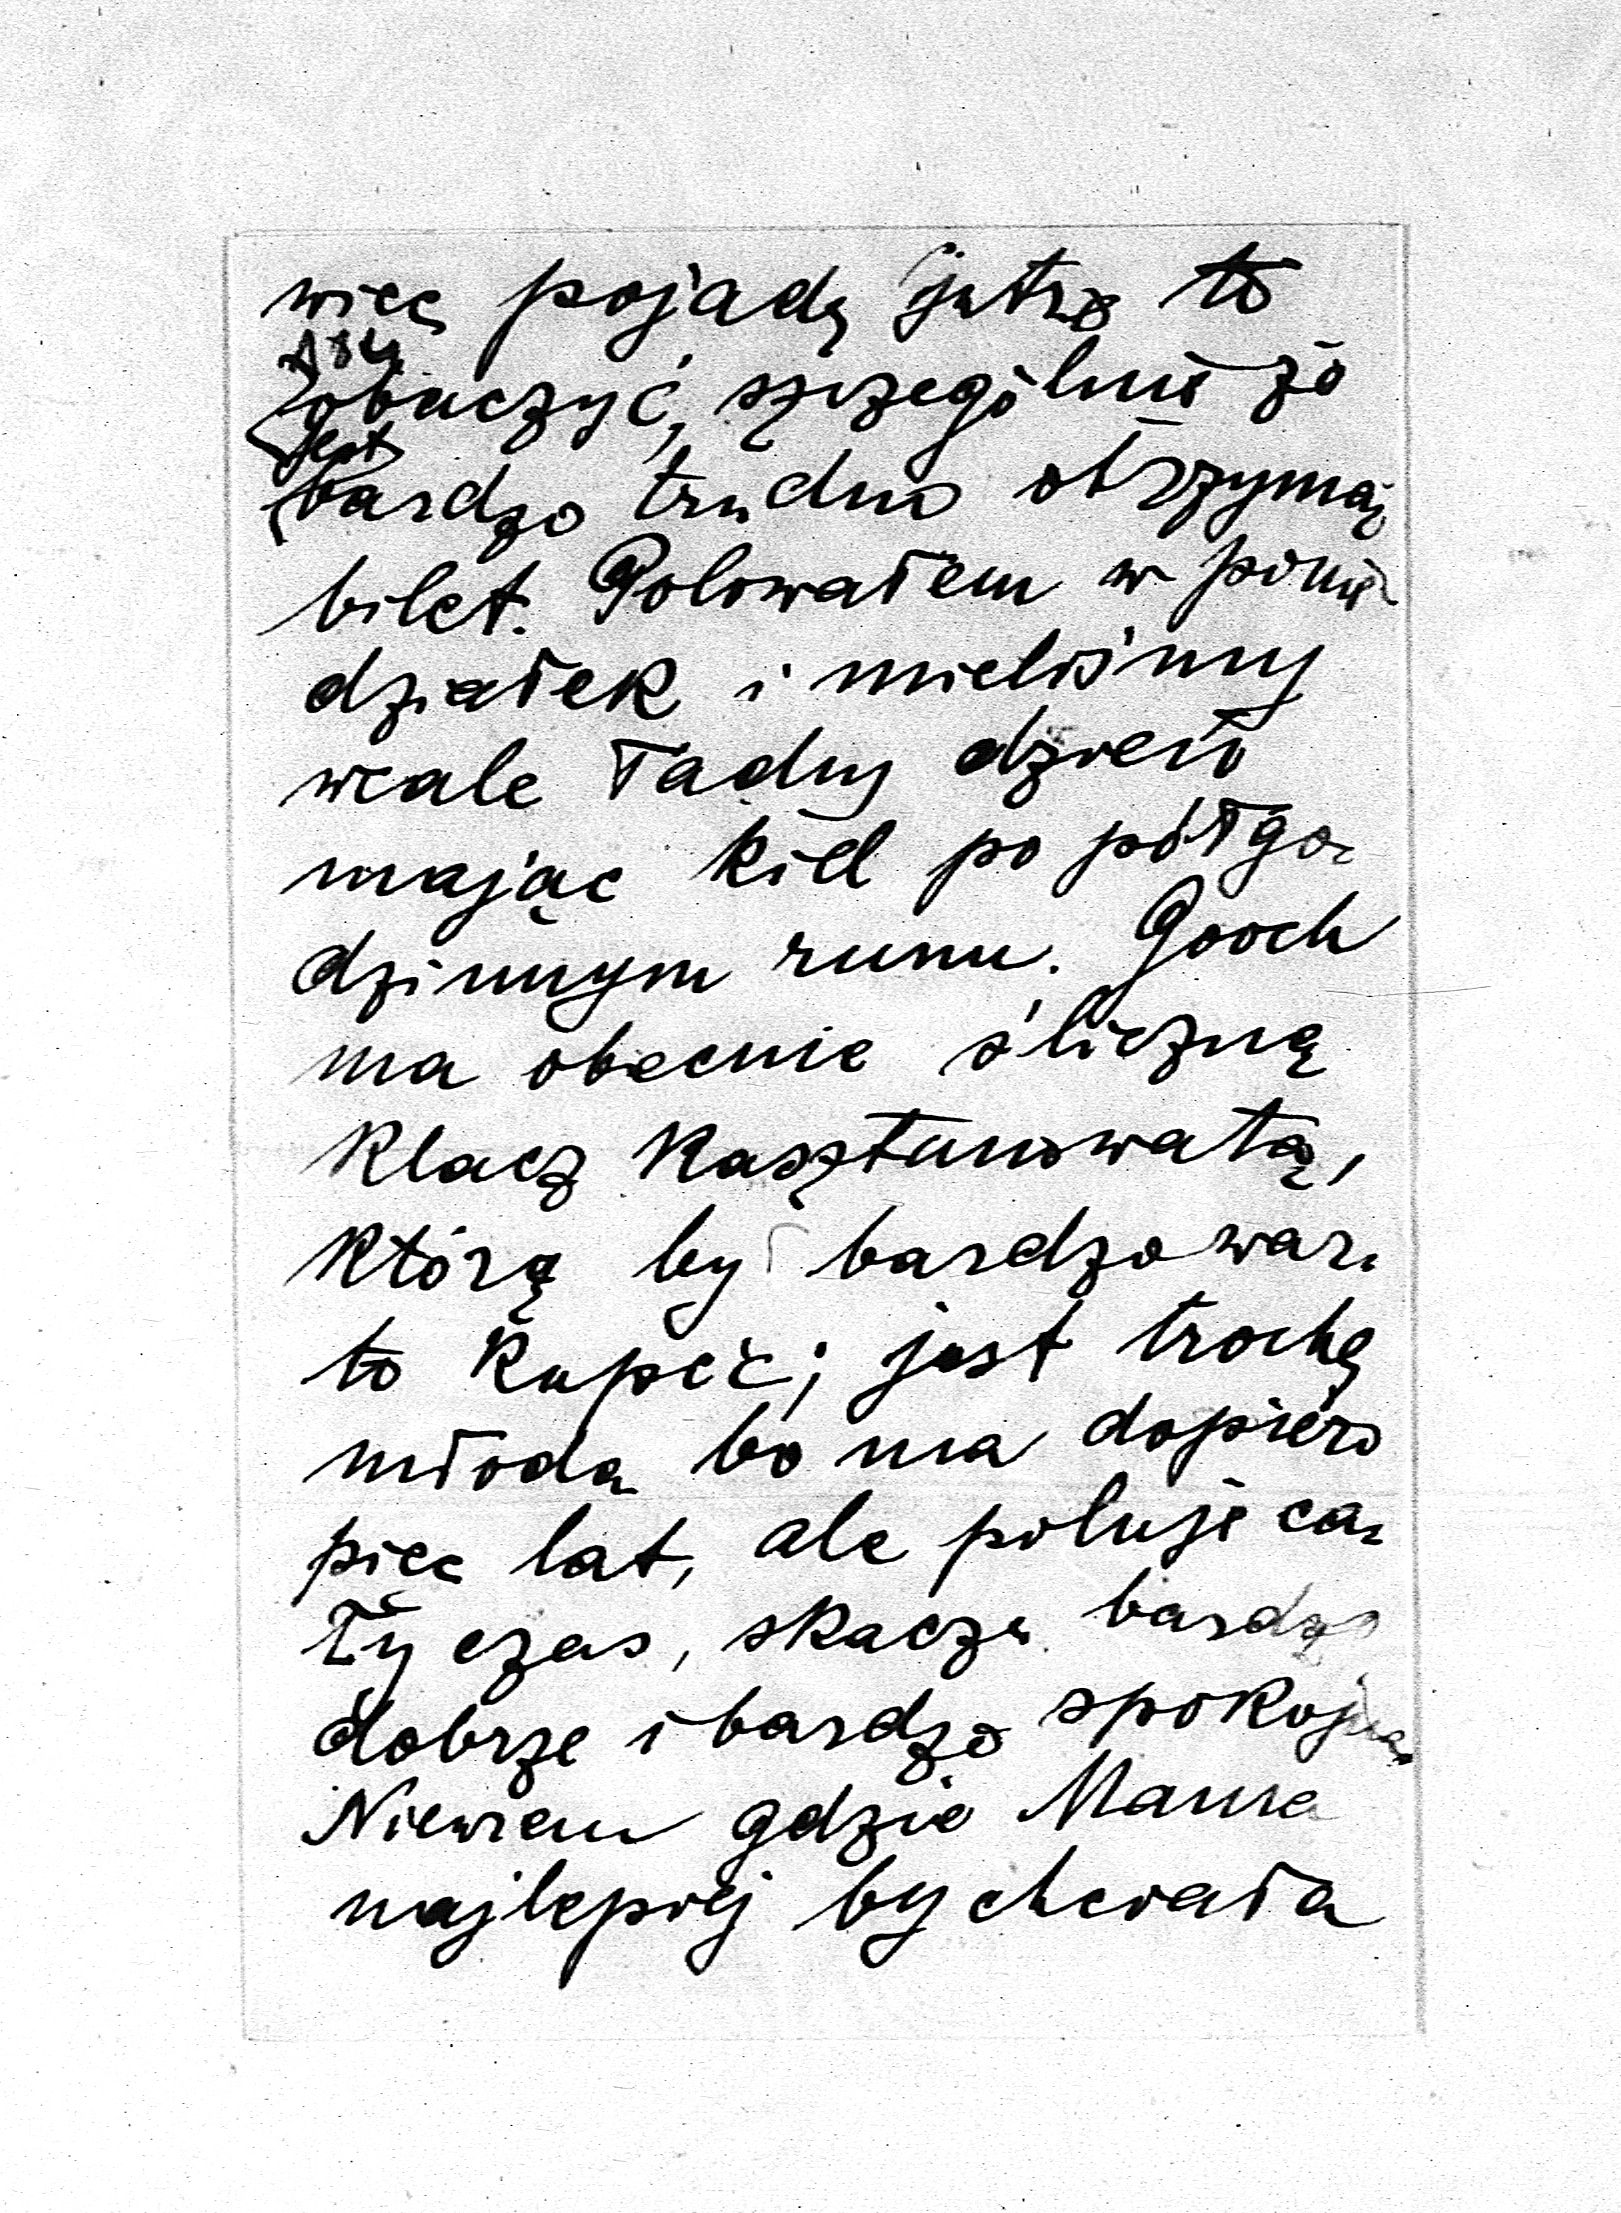 więc pojadę jutro to
zobaczyć, szczególnie że
jest
bardzo trudno otrzymać
bilet. Polowałem w ponie-
działek i mieliśmy
wcale ładny dzień
mając kill po półgo-
dzinnym runu. Gooch
ma obecnie śliczną
klacz kasztanowatą,
którą by bardzo war-
to kupić; jest trochę
młoda bo ma dopiero
pięć lat, ale poluje ca-
ły czas, skacze bardzo
dobrze i bardzo spokojna
Niewiem gdzie Mama
najlepiej by chciała